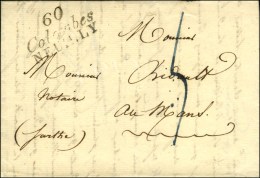 60
Colombes
NEUILLY
Monsieur
Monsieur
Notaire
au Mans
(Sarthe)
5